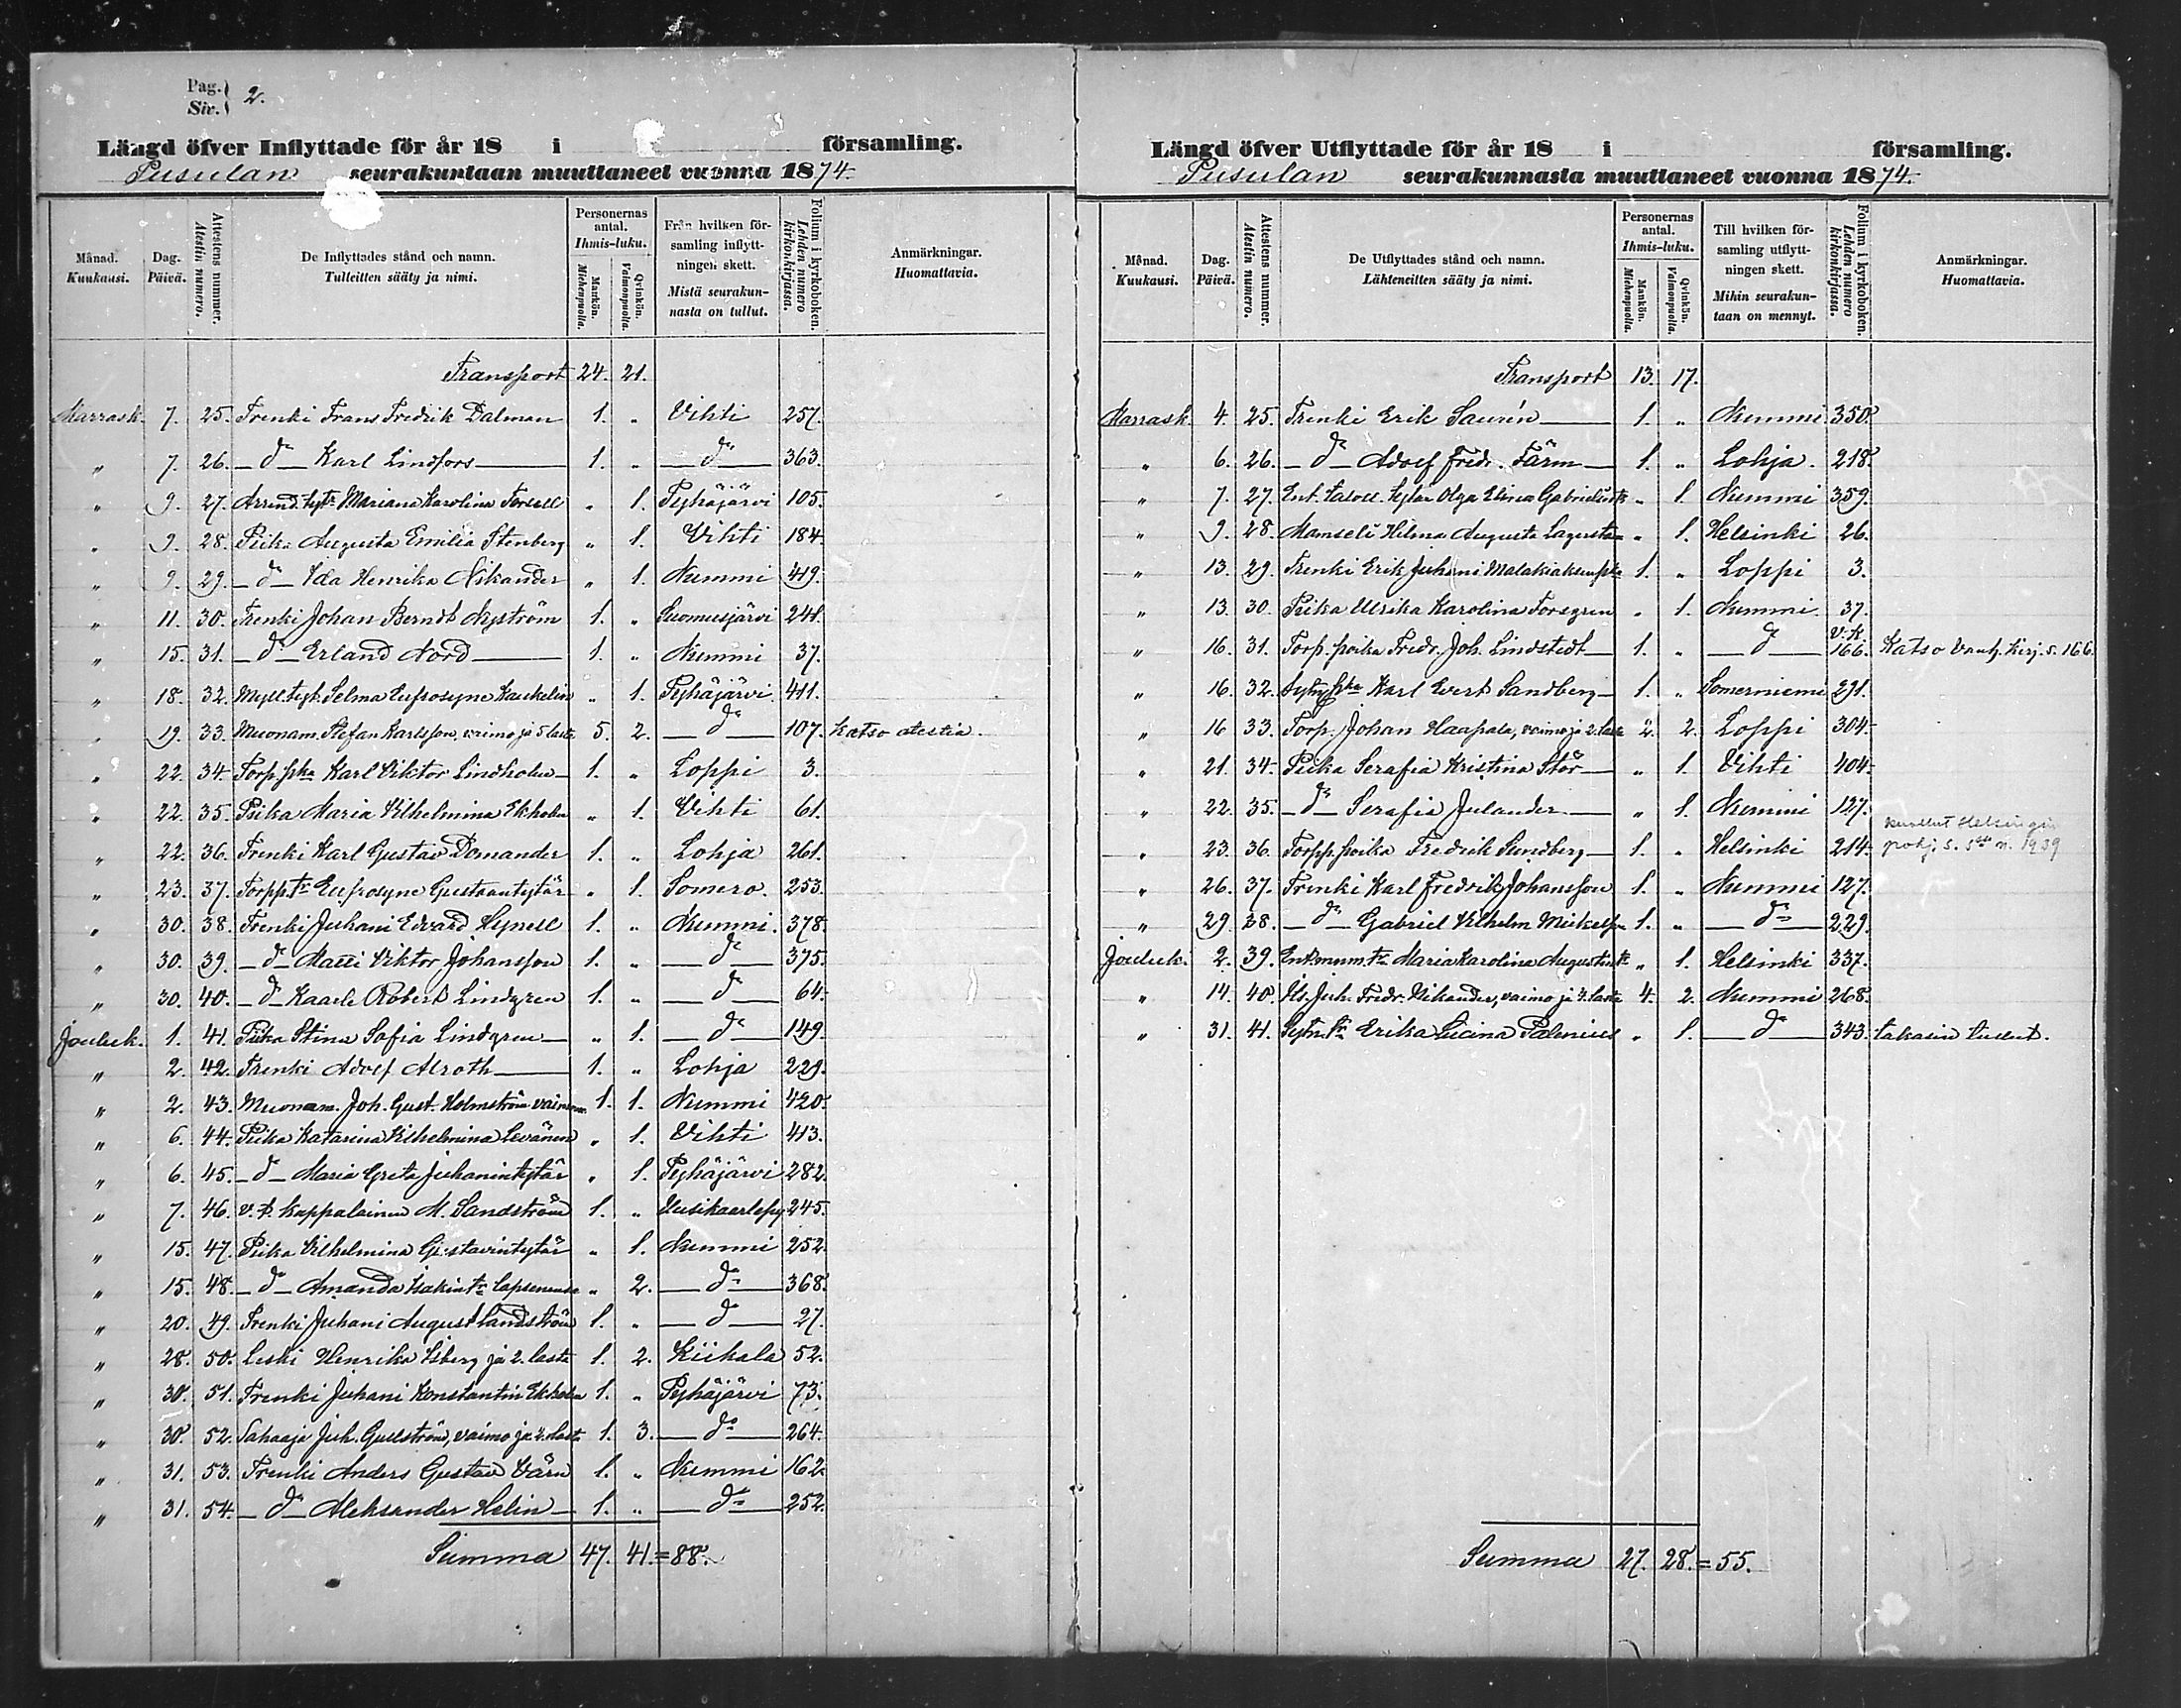 Pag. } 2.
Siv. }
Längd öfver Inflyttade för år 18 i församling.
Pusulan seurakuntaan muuttaneet vuonna 1874.
Månad. Kuukausi. Dag. Päivä. Attestens nummer. Atestin numero. De Inflyttades stånd och namn. Tulleitten sääty ja nimi. Personernas antal. Ihmis-luku. Mankön. Miehenpuolia. Qvinkön. Vaimonpuolia. Från hvilken församling inflyttningen skett. Mistä seurakunnasta on tullut. Folium i kyrkoboken. Lehden numero kirkonkirjassa. Anmärkningar. Huomattavia.
Transport 24. 21.
Marrask. 7. 25. Trenki Frans Fredrik Dalman 1. " Vihti 257.
" 7. 26. d:o Karl Lindfors 1. " d:o 363.
" 9. 27. Arrend. tyt:r Mariana Karolina Forsell " 1. Pyhäjärvi 105.
" 9. 28. Piika Augusta Emilia Stenberg " 1. Vihti 184.
" 9. 29. d:o Ida Henrika Nikander " 1. Nummi 419.
" 11. 30. Trenki Johan Berndt Nyström 1. " Suomusjärvi 241.
" 15. 31. d:o Erland Nord 1. " Nummi 37.
" 18. 32. Myll. tyt. Selma Eufrosyne " 1. Pyhäjärvi 411.
" 19. 33. Muonam. Stefan Karlsson, vaimo ja 5 lasta 5. 2. d:o 107. Katso atestia.
" 22. 34. Torp. pka Karl Viktor Lindholm 1. " Loppi 3.
" 22. 35. Piika Maria Vilhelmina Ekholm " 1. Vihti 61.
" 22. 36. Trenki Karl Gustav Domander 1. " Lohja 261.
" 23. 37. Torpp. tr Eufrosyne Gustaantytär " 1. Somero. 253.
" 30. 38. Trenki Juhani Edvard Hynell 1. " Nummi. 378.
" 30. 39. d:o Matti Viktor Johansson 1. " d:o 375.
" 30. 40. d:o Kaarle Robert Lindgren 1. " d:o 64.
Jouluk. 1. 41. Piika Stina Sofia Lindgren " 1. d:o 149.
" 2. 42. Trenki Adolf Alroth 1. " Lohja 229.
" 2. 43. Muonam. Joh. Gust. Holmström vaimon. 1. 1. Nummi 420.
" 6. 44. Piika Katarina Vilhelmina Levänen " 1. Vihti 413.
" 6. 45. d:o Maria Greta Juhanintytär " 1. Pyhäjärvi 282.
" 7. 46. v. t. kappalainen M. Sandström 1. " Uusikaarlepy 245.
" 15. 47. Piika Vilhelmina Gustavintytär " 1. Nummi 252.
" 15. 48. d:o Amanda Isakint:r lapsenensa " 2. d:o 368.
" 20. 49. Trenki Juhani August Landström 1. " d:o 27.
" 28. 50. Leski Henrika Isberg ja 2. lasta 1. 2. Kiikala 52.
" 30. 51. Trenki Juhani Konstantin Ekholm 1. " Pyhäjärvi 73.
" 30. 52. Sahaaja Juh. Gullström, vaimo ja 2. lasta 1. 3. d:o 264.
" 31. 53. Trenki Anders Gustav Värn 1. " Nummi 162.
" 31. 54. d:o Aleksander Helin 1. " d:o 252.
Summa 47. 41. = 88.
Längd öfver Utflyttade för år 18 i församling.
Pusulan seurakunnasta muuttaneet vuonna 1874.
Månad. Kuukausi. Dag. Päivä. Attestens nummer. Atestin numero. De Utflyttades stånd och namn. Lähteneitten sääty ja nimi. Personernas antal. Ihmis-luku. Mankön. Miehenpuolia. Qvinkön. Vaimonpuolia. Till hvilken församling utflyttningen skett. Mihin seurakuntaan on mennyt. Folium i kyrkoboken. Lehden numero kirkonkirjassa. Anmärkningar. Huomattavia.
Transport 13. 17.
Marrask. 4. 25. Trenki Erik Saurén 1. " Nummi 350.
" 6. 26. d:o Adolf Fredr. Färm 1. " Lohja. 218.
" 7. 27. Ent. tytär Olga Elina " 1. Nummi 359.
" 9. 28. Mamseli Helma Augusta Lagerstam " 1. Helsinki 26.
" 13. 29. Trenki Erik Juhani Malakiaksenpka 1. " Loppi 3.
" 13. 30. Piika Ulrika Karolina Forsgren " 1. Nummi 37.
" 16. 31. Torp. poika Fredr. Joh. Lindstedt 1. " d:o v. k. 166. Katso vanh. kirj. s. 166.
" 16. 32. pka Karl Evert Sandberg 1. " Somerniemi 291.
" 16 33. Torp. Johan Haapala, vaimo ja 2. lasta 2. 2. Loppi 304.
" 21. 34. Piika Serafia Kristina Stör " 1. Vihti 404.
" 22. 35. d:o Serafia Julander " 1. Nummi 127.
" 23. 36. Torpp. poika Fredrik Sundberg 1. " Helsinki 214. kuollut Helsingin pohj. s. 1939
" 26. 37. Trenki Karl Fredrik Johansson 1. " Nummi 127.
" 29. 38. d:o Gabriel Vilhelm Mickelss. 1. " d:o 229.
Jouluk. 2. 39. Ent. muonm. t:r Maria Karolina Augustint:r " 1. Helsinki 337.
" 14. 40. Its. Juh. Fredr. Nikander, vaimo ja 4. lasta 4. 2. Nummi 268.
" 31. 41. t:r Erika Lucina Palenius " 1. d:o 343. takasin tullut.
Summa 27. 28. = 55.